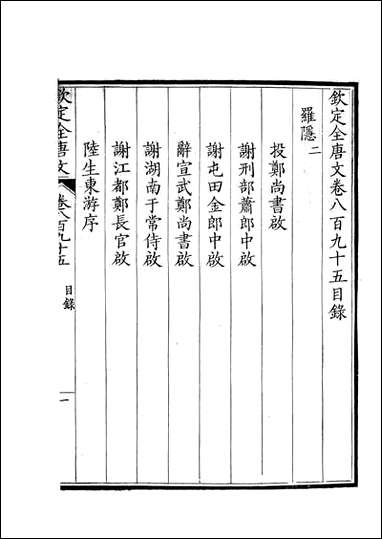 欽定全唐文卷八百九十五目錄
羅隱二
投鄭尚書啟
謝刑部蕭郎中啟
謝屯田金郎中啟
辭宣武鄭尚書啟
謝湖南于常侍啟
謝江都鄭長官啟
陸生東游序
欽定全唐文 卷八百九十五 目錄 一